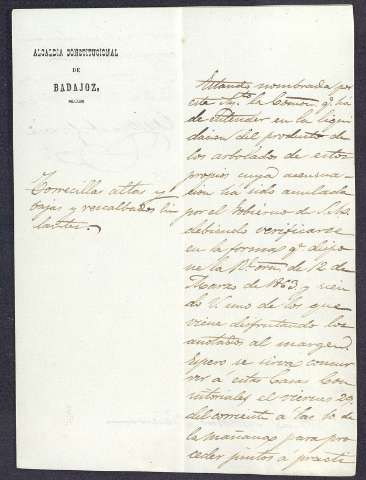 ALCALDIA CONSTITUCIONAL
DE
BADAJOZ.
Torrecillas altas y
bajas y rescalbados lin
dantes.
Estando nombrada por
este Ay.to la Comon. q.e ha
de entender en la liqui
dacion del producto de
los arbolados de estos
propios cuya enervia
cion ha sido anulada
por el Gobierno de
debiendo verificarse
en la forma q.e dispo
ne la Rl. orn. de 12 de
Marzo de 1863, y sien
do V. uno de los que
viene disfrutando los
anotados al margen
Espero se sirva concur
rir á estas Casas Con
sistoriales el viernes 23
del corriente á las 10 de
la mañana para pro
ceder juntos á practi